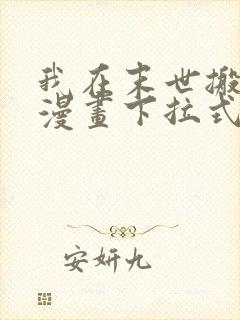 我在末世搬
漫畫下拉式
安妍九